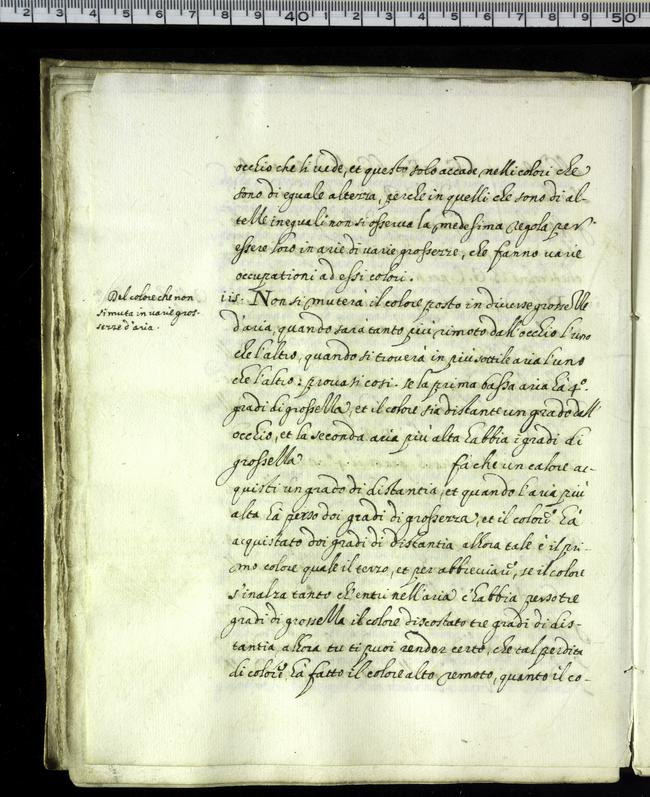 2 3 4 5 6 7 8 9 40 1 2 3 4 5 6 7 8 9 50
occhio che li vede, et questo solo accade, nelli colori che
sono di eguale altezza, perche in quelli che sono di al-
tezze ineguali non si osserva la medesima regola per
essere loro in arie di varie grossezze, che fanno varie
occupationi ad essi colori.
Del colore che non
si muta in varie gros-
sezze d'aria.
iis: Non si muterà il colore posto in diverse grossezze
d'aria, quando sarà tanto più rimoto dall'occhio l'uno
che l'altro, quando si troverà in più sottile aria l'uno
che l'altro: provasi così. se la prima bassa aria hà 4º.
gradi di grossezza, et il colore sia distante un grado dall'
occhio, et la seconda aria più alta habbia 3 gradi di
grossezza . . . fà che un calore ac-
quisti un grado di distantia, et quando l'aria più
alta hà perso doi gradi di grossezza, et il colore hà
acquistato doi gradi di distantia allora tale è il pri-
mo colore quale il terzo, et per abbreviare, se il colore
s'inalza tanto ch'entri nell'aria c'habbia perso tre
gradi di grossezza il colore discostato tre gradi di dis-
tantia allora tu ti puoi render certo, che tal perdita
di colore hà fatto il colore alto remoto, quanto il co-